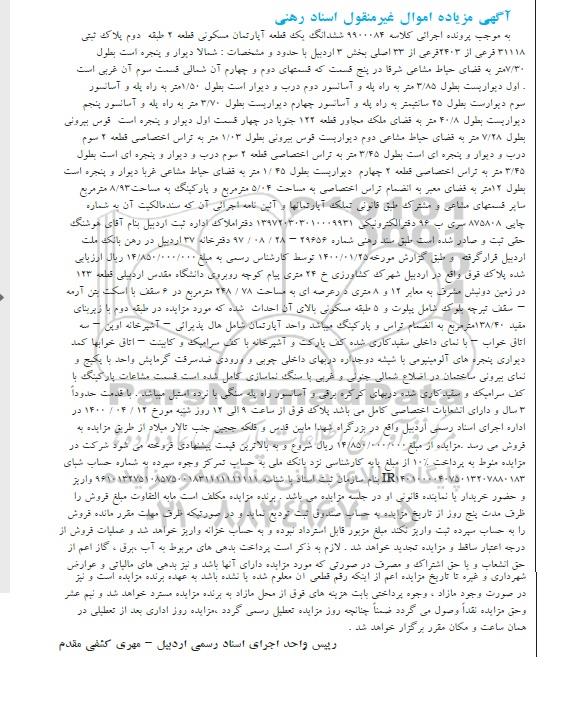 آگهی مزیاده اموال غیرمنقول اسناد رهنی
به موجب پرونده اجرائی کلاسه ۹۹۰۰۰۸۴ ششدانگ یک قطعه آپارتمان مسکونی قطعه ۲ طبقه دوم پلاک ثبتی
۳۱۱۱۸ فرعی از ۲۴۰۳فرعی از ۳۳ اصلی بخش ۳ اردبیل با حدود و مشخصات : شمالا دیوار و پنجره است بطول
۷/۳۰متر به فضای حیاط مشاعی شرقا در پنج قسمت که قسمتهای دوم و چهارم آن شمالی قسمت سوم آن غربی است
. اول دیواریست بطول ۳/۸۵ متر به راه پله و آسانسور دوم درب و دیوار است بطول ۱/۵۰متر به راه پله و آسانسور
سوم دیوارست بطول ۲۵ سانتیمتر به راه پله و آسانسور چهارم دیواریست بطول ۳/۷۰ متر به راه پله و آسانسور پنجم
دیواریست بطول ۴۰/۸ متر به فضای ملک مجاور قطعه ۱۲۲ جنوبا در چهار قسمت اول دیوار و پنجره است قوس بیرونی
بطول ۷/۲۸ متر به فضای حیاط مشاعی دوم دیواریست قوس بیرونی بطول ۱/۰۳ متر به تراس اختصاصی قطعه ۲ سوم
درب و دیوار و پنجره ای است بطول ۳/۴۵ متر به تراس اختصاصی قطعه ۲ سوم درب و دیوار و پنجره ای است بطول
۳/۴۵ متر به تراس اختصاصی قطعه ۲ چهارم دیواریست بطول ۴۵ /۱ متر به فضای حیاط مشاعی غربا دیوار و پنجره است
بطول ۱۲متر به فضای معبر به انضمام تراس اختصاصی به مساحت ۵/۰۴ مترمربع و پارکینگ به مساحت۸/۹۳ مترمربع
سایر قسمتهای مشاعی و مشترک طبق قانونی تملک آپارتمانها و آئین نامه اجرائی آن که سندمالکیت آن به شماره
چاپی ۸۷۵۸۰۸ سری ب ۹۶ دفترالکترونیکی ۱۳۹۷۲۰۳۰۳۰۱۰۰۰۹۹۳۱ دفتراملاک اداره ثبت اردبیل بنام آقای هوشنگ
حقی ثبت و صادر شده است طبق سند رهنی شماره ۲۹۶۵۶ – ۲۸ / ۰۸ / ۹۷ دفترخانه ۳۷ اردبیل در رهن بانک ملت
اردبیل قرارگرفته و طبق گزارش مورخه۱۴۰۰/۰۱/۲۵ توسط کارشناس رسمی به مبلغ ۱۴/۸۵۰/۰۰۰/۰۰۰ ریال ارزیابی
شده پلاک فوق واقع در اردبیل شهرک کشاورزی خ ۲۴ متری پیام کوچه روبروی دانشگاه مقدس اردبیلی قطعه ۱۲۳
در زمین دونبش مشرف به معابر ۱۲ و ۸ متری د رعرصه ای به مساحت ۷۸ / ۲۴۸ مترمربع در ۶ سقف با اسکت بتن آرمه
– سقف تیرچه بلوک شامل پیلوت و ۵ طبقه مسکونی بالای آن احداث شده که مورد مزایده در طبقه دوم با زیربنای
مفید ۱۳۸/۴۰مترمربع به انضمام تراس و پارکینگ میباشد واحد آپارتمان شامل هال پذیرائی – آشپرخانه اوپن – سه
اتاق خواب – با نمای داخلی سفیدکاری شده کف پارکت و آشپرخانه با کف سرامیک و کابینت – اتاق خوابها کمد
دیواری پنجره های آلومینیومی با شیشه دوجداره دربهای داخلی چوبی و ورودی ضدسرقت گرمایش واحد با پکیج و
نمای بیرونی ساختمان در اضلاع شمالی جنوبی و غربی با سنگ نماسازی کامل شده است قسمت مشاعات پارکینگ با
کف سرامیک و سفیدکاری شده دربهای کرکره برقی و آسانسور راه پله سنگی با نرده استیل میباشد . با قدمت حدوداً
۳ سال و دارای انشعابات اختصاصی کامل می باشد پلاک فوق از ساعت ۹ الی ۱۲ روز شنبه مورخ ۱۲ / ۰۴ / ۱۴۰۰ در
اداره اجرای اسناد رسمی اردبیل واقع در بزرگراه شهدا مابین قدیس و فلکه ججین جنب تالار میلاد از طریق مزایده به
فروش می رسد .مزایده از مبلغ ۱۴/۸۵۰/۰۰۰/۰۰۰ ریال شروع و به بالاترین قیمت پیشنهادی فروخته می شود شرکت در
مزایده منوط به پرداخت ۱۰٪ از مبلغ پایه کارشناسی نزد بانک ملی به حساب تمرکز وجوه سپرده به شماره حساب شبای
و حضور خریدار یا نماینده قانونی او در جلسه مزایده می باشد . برنده مزایده مکلف است مابه التفاوت مبلغ فروش را
ظرف مدت پنج روز از تاریخ مزایده به حساب صندوق ثبت تودیع نماید و در صورتیکه ظرف مهلت مقرر مانده فروش
را به حساب سپرده ثبت واریز نکند مبلغ مزبور قابل استرداد نبوده و به حساب خزانه واریز خواهد شد و عملیات فروش از
درجه اعتبار ساقط و مزایده تجدید خواهد شد . لازم به ذکر است پرداخت بدهی های مربوط به آب ،برق ، گاز اعم از
حق انشعاب و یا حق اشتراک و مصرف در صورتی که مورد مزایده دارای آنها باشد و نیز بدهی های مالیاتی و عوارض
شهرداری و غیره تا تاریخ مزایده اعم از اینکه رقم قطعی آن معلوم شده یا نشده باشد به عهده برنده مزایده است و نیز
در صورت وجود مازاد ، وجوه پرداختی بابت هزینه های فوق از محل مازاد به برنده مزایده مسترد خواهد شد و نیم عشر
وحق مزایده نقداً وصول می گردد ضمناً چنانچه روز مزایده تعطیل رسمی گردد ،مزایده روز اداری بعد از تعطیلی در
همان ساعت و مکان مقرر برگزار خواهد شد .
رییس واحد اجرای اسناد رسمی اردبیل – مهری کشفی مقدم